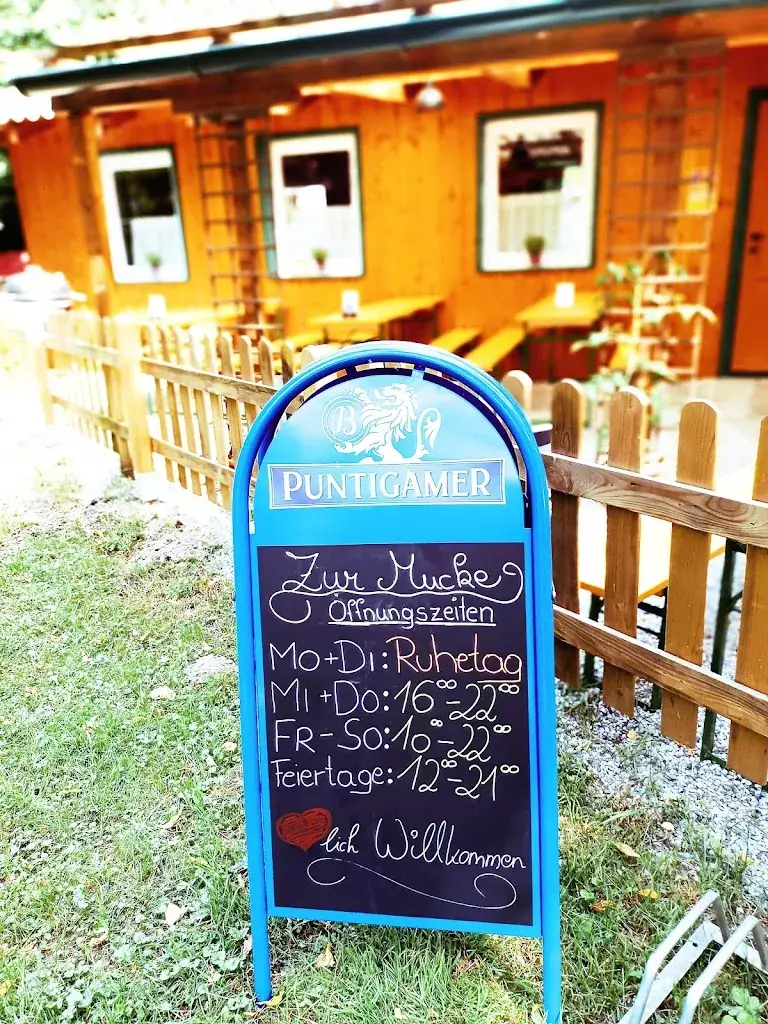 B
PUNTIGAMER
Zur Mucke
Öffnungszeiten
Mo+Di: Ruhetag
Mi+Do: 16⁰⁰-22⁰⁰
FR-So: 10⁰⁰-22⁰⁰
Feiertage: 12⁰⁰-21⁰⁰
lich Willkommen